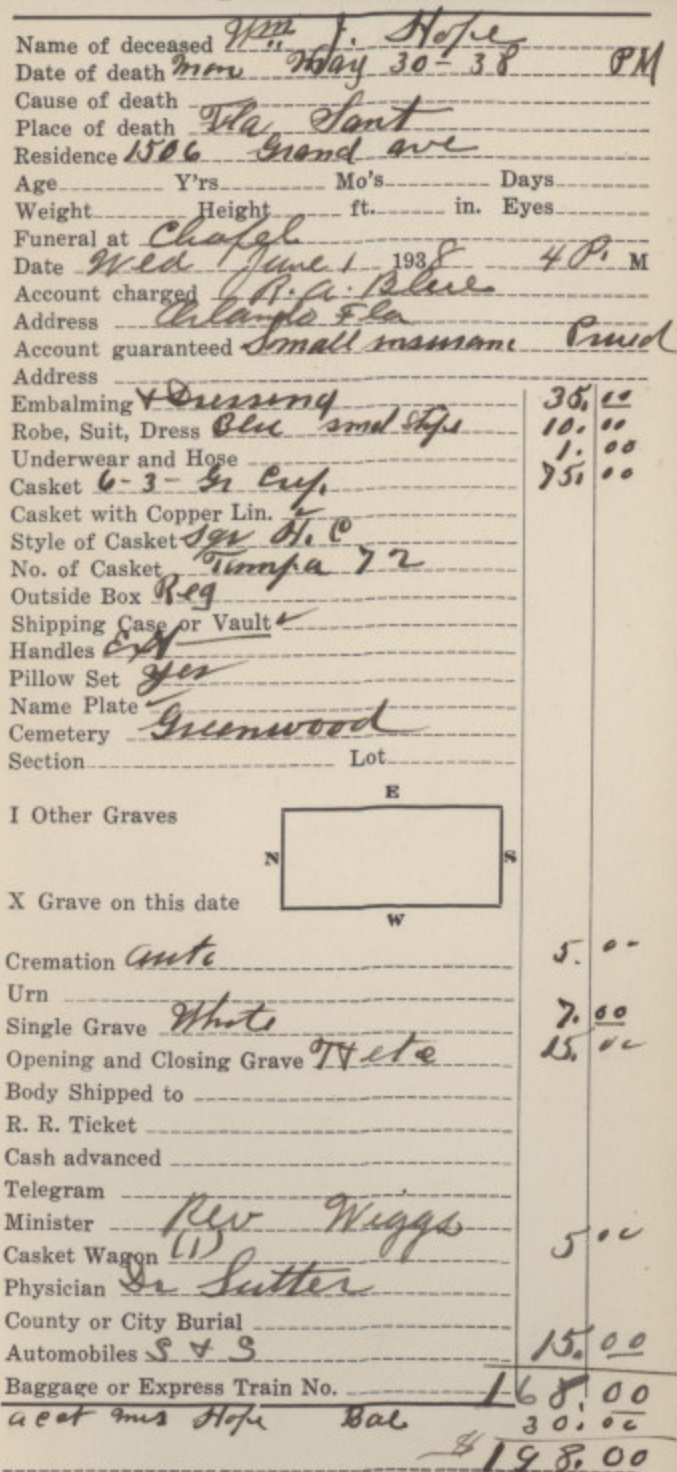 Name of deceased Wm J. Hope
Date of death Mon May 30 - 38 PM
Cause of death
Place of death Fla Sant
Residence 1506 Grand ave
Age Y'rs Mo's Days
Weight Height ft. in. Eyes
Funeral at Chapel
Date Wed June 1 1938 4 P. M
Account charged R. A.
Address Orlando Fla
Account guaranteed Small
Address
Embalming & Dressing 35.00
Robe, Suit, Dress Blu 10.00
Underwear and Hose 1.00
Casket 6-3- Gr 75.00
Casket with Copper Lin. ✓
Style of Casket Sqr H. C
No. of Casket Tampa 72
Outside Box Reg
Shipping Case or Vault ✓
Handles Ext
Pillow Set Yes
Name Plate ✓
Cemetery Greenwood
Section Lot
E
I Other Graves
N S
X Grave on this date
W
Cremation auto 5.00
Urn
Single Grave 7.00
Opening and Closing Grave 15.00
Body Shipped to
R. R. Ticket
Cash advanced
Telegram
Minister Rev Wiggs
Casket Wagon (1) 5 00
Physician Dr Sutter
County or City Burial
Automobiles S & S 15.00
Baggage or Express Train No. 168.00
acct Mrs Hope Bal 30.00
$198.00